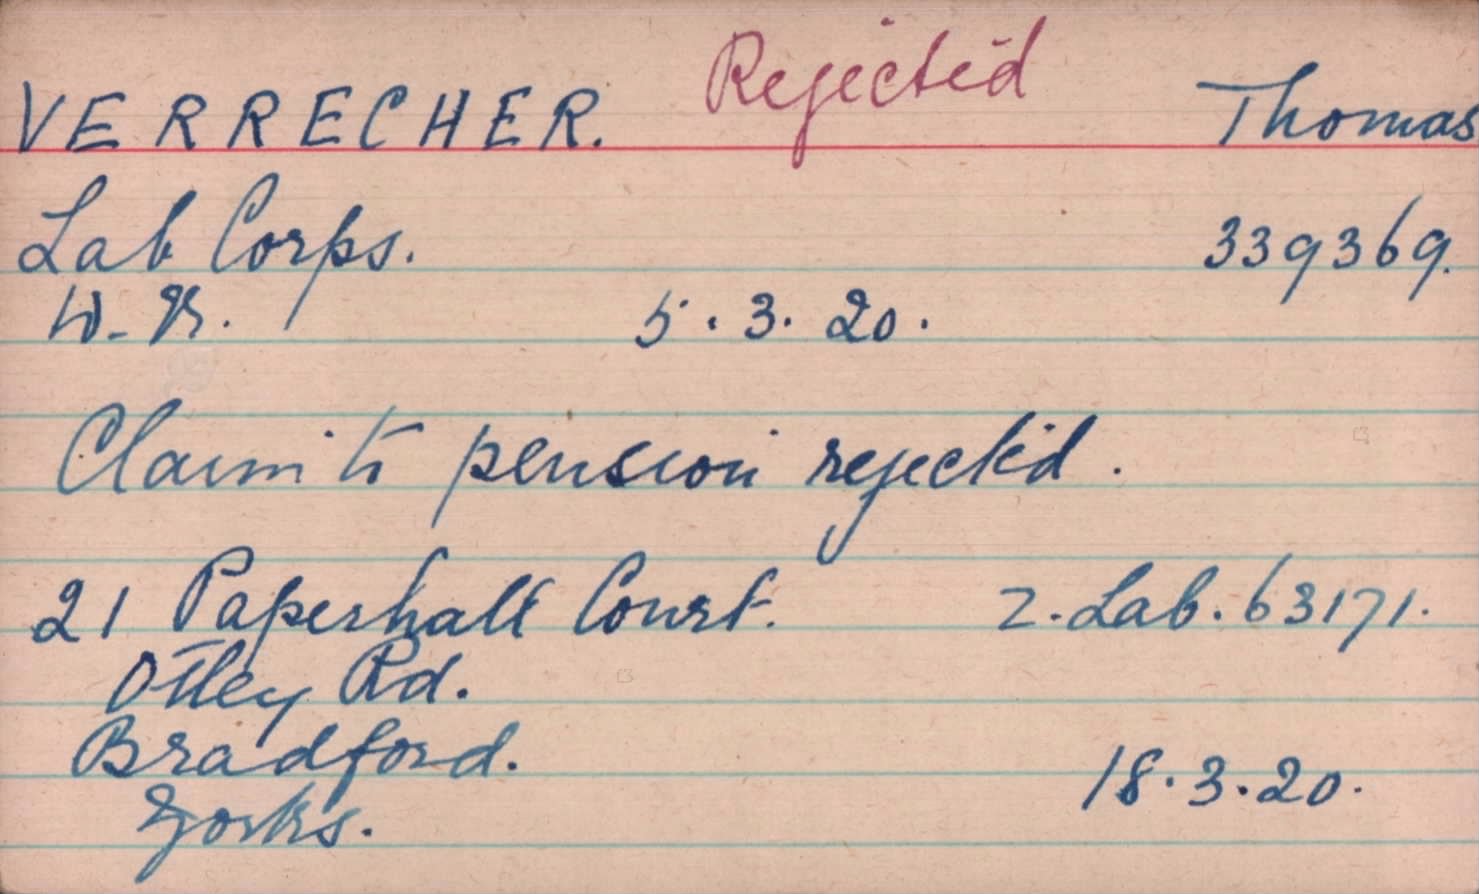 VERRECHER. Rejected Thomas
Lab Corps. 339369.
5.3.20.
Claim to pension rejected.
21 Paperhall Court. Z.Lab.63171.
Otley Rd.
Bradford. 18.3.20.
Yorks.